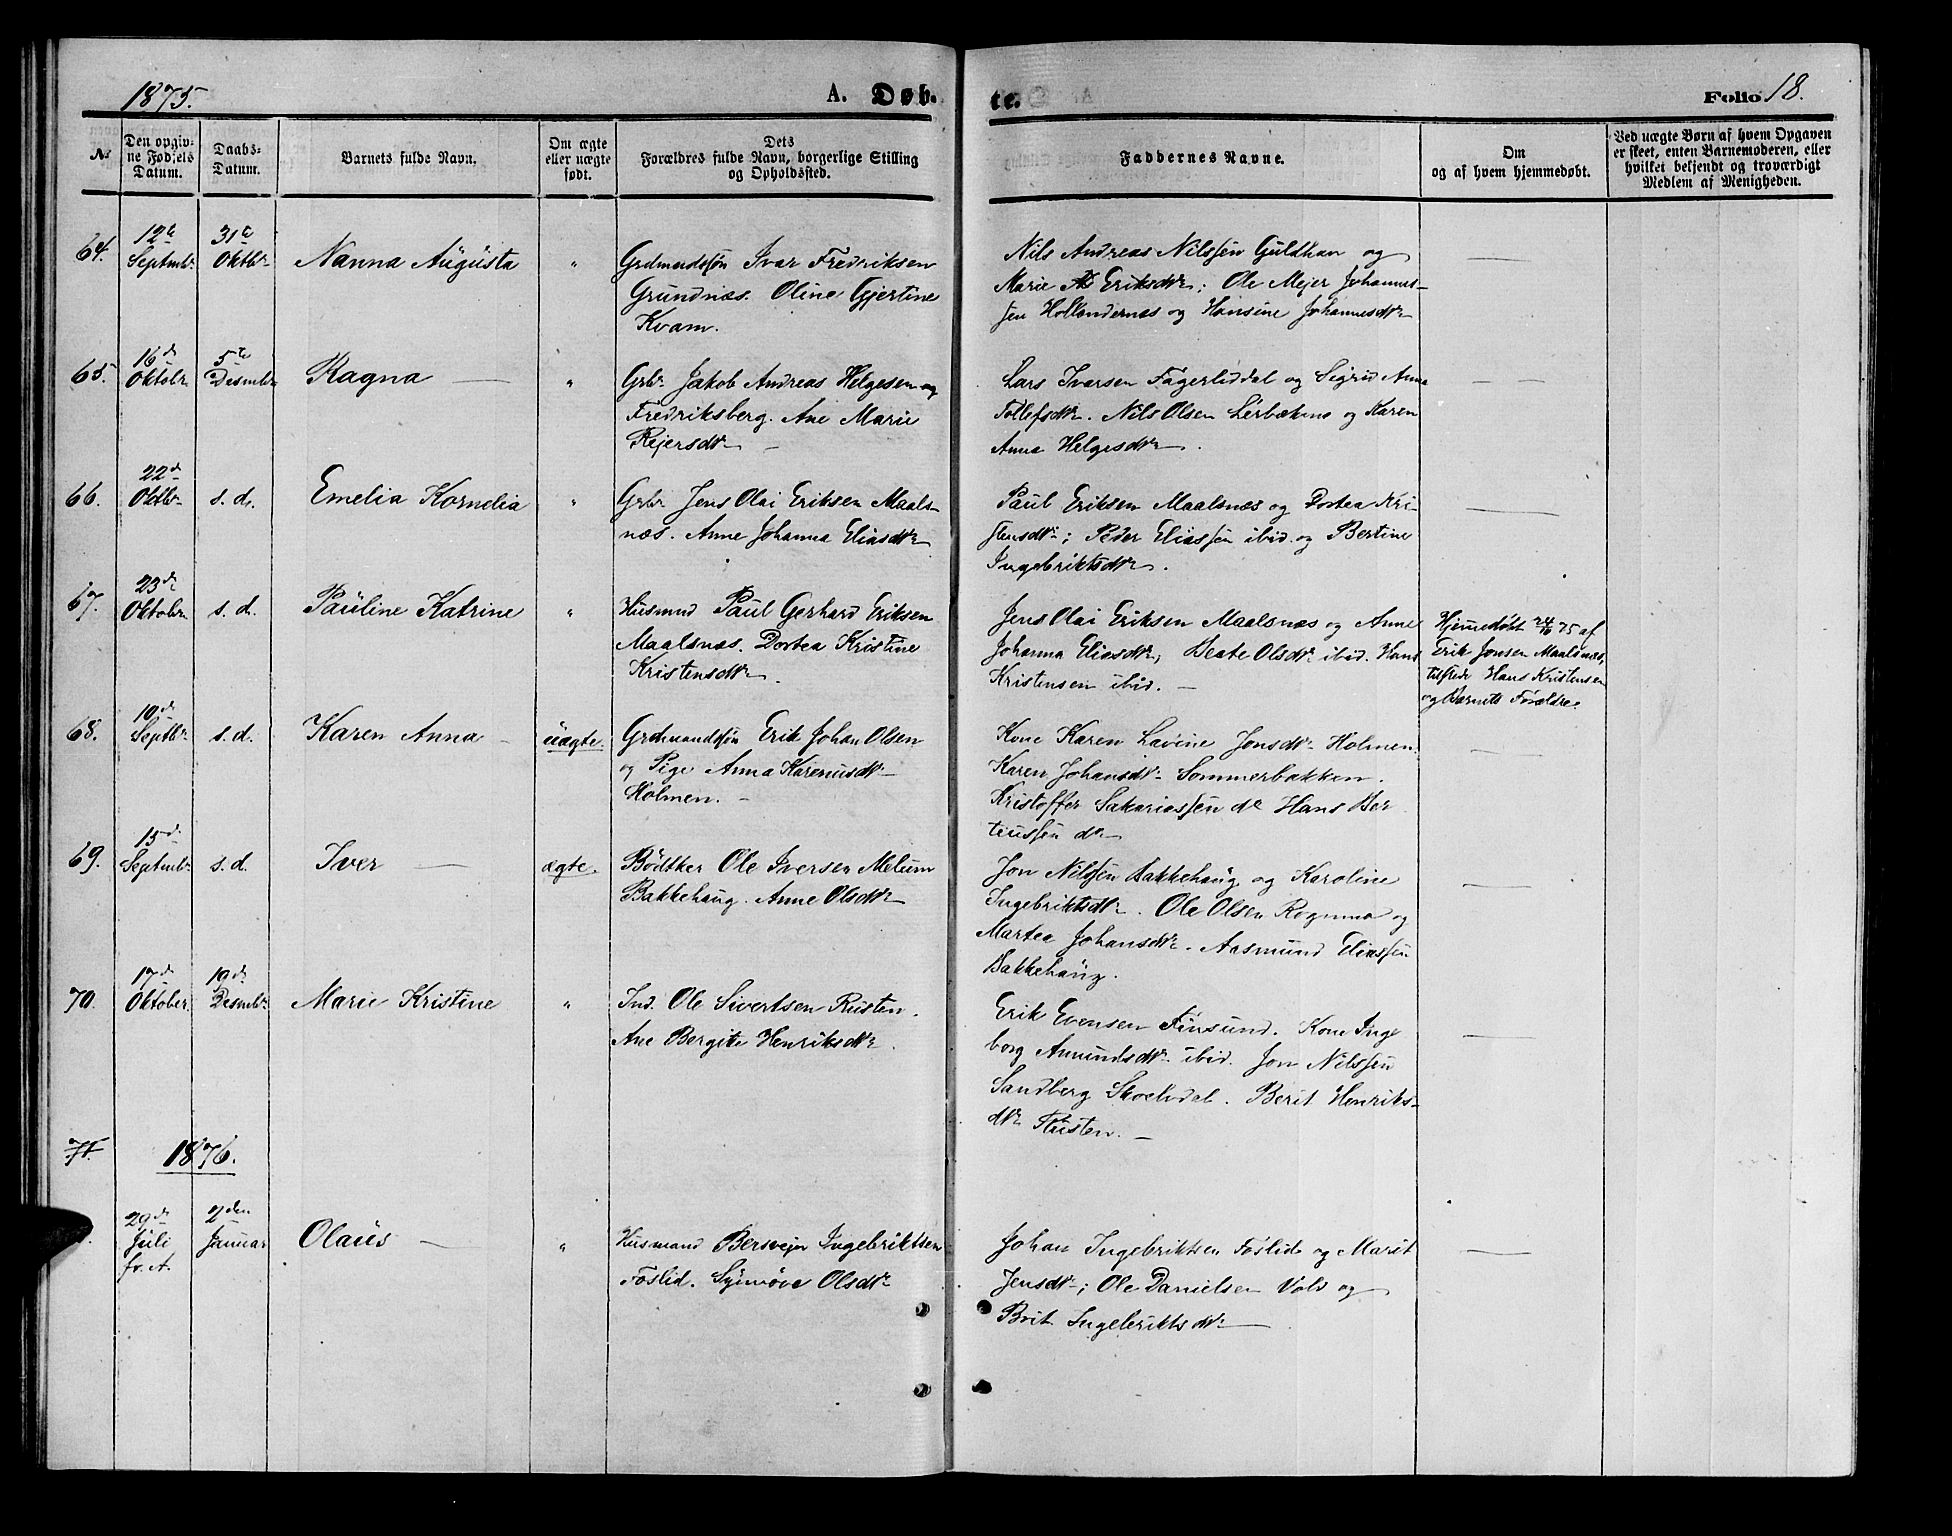 1875.
A. Døb-
te.
Folio 18.
No
Den opgiv-
ne Fødsels
Datum.
Daabs-
Datum.
Barnets fulde Navn.
Om ægte
eller uægte
født.
Dets
Forældres fulde Navn, borgerlige Stilling
og Opholdssted.
Faddernes Navne.
Om
og af hvem hjemmedøbt.
Ved uægte Børn af hvem Opgaven
er skeet, enten Barnemoderen, eller
hvilket bekjendt og troværdigt
Medlem af Menigheden.
64.
12te
Septmbr
31te
Oktbr
Nanna Augusta
"
Grdmndssøn Ivar Fredriksen
Grundnæs. Oline Gjertine
Kvam.
Nils Andreas Nilssen Guldhav og
Marie Eriksdtr; Ole Mejer Johannes-
sen Hollendernæs og Hansine Johannesdtr
65.
16de
Oktobr
5te
Desmbr
Ragna
"
Grbr Jakob Andreas Helgesen og
Fredriksberg. Ane Marie
Rejersdtr
Lars Ivarsen Fagerliddal og Sigrid Anna
Tollefsdtr. Nils Olsen Lerbækmo og Karen
Anna Helgesdtr.
66.
22de
Oktbr
s. d.
Emelia Kornelia
"
Grbr Jens Olai Eriksen Maals-
næs. Anne Johanna Eliasdtr
Paul Eriksen Maalsnæs og Dortea Kri-
stensdtr; Peder Eliassen ibid. og Bertine
Ingebriktsdtr.
67.
23de
Oktobr
s. d.
Pauline Katrine
"
Husmnd Paul Gerhard Eriksen
Maalsnæs. Dortea Kristine
Kristensdtr.
Jens Olai Eriksen Maalsnæs og Anne
Johanna Eliasdtr, Beate Olsdtr ibid. Hans
Kristensen ibid.
Hjemmedøbt 24/10 75 af
Erik Jonsen Maalsnæs,
tilstede Hans Kristensen
og Barnets Forældre.
68.
10de
Septbr
s. d.
Karen Anna
uægte.
Grdmandssøn Erik Johan Olsen
og Pige Anna Karenusdtr
Holmen.
Kone Karen Lavine Jonsdtr Holmen.
Karen Johansdtr Sommerbakken.
Kristoffer Sakariassen do Hans Ber
teussen do
69.
15de
Septmbr
s. d.
Iver
ægte.
Bødtker Ole Iversen Melum
Bakkehaug. Anne Olsdtr
Jon Nilssen Bakkehaug og Karoline
Ingebriktsdtr. Ole Olsen Rognmo og
Martea Johansdtr. Aasmund Eliassen
Bakkehaug.
70.
17de
Oktober
19de
Desmbr
Marie Kristine
"
Ind. Ole Sivertsen Rusten.
Ane Bergite Henriksdtr.
Erik Evensen Finsund. Kone Inge
borg Amundsdtr ibid. Jon Nilssen
Sandberg Skoelvdal. Berit Henriks-
dtr Rusten.
71.
1876.
29de
Juli
fr. A.
2den
Januar
Olaus
"
Husmand Bersvejn Ingebriktsen
Foslid. Synnøve Olsdtr
Johan Ingebriktsen Foslid og Marit
Jensdtr; Ole Danielsen Vold og
Brit Ingebriktsdtr